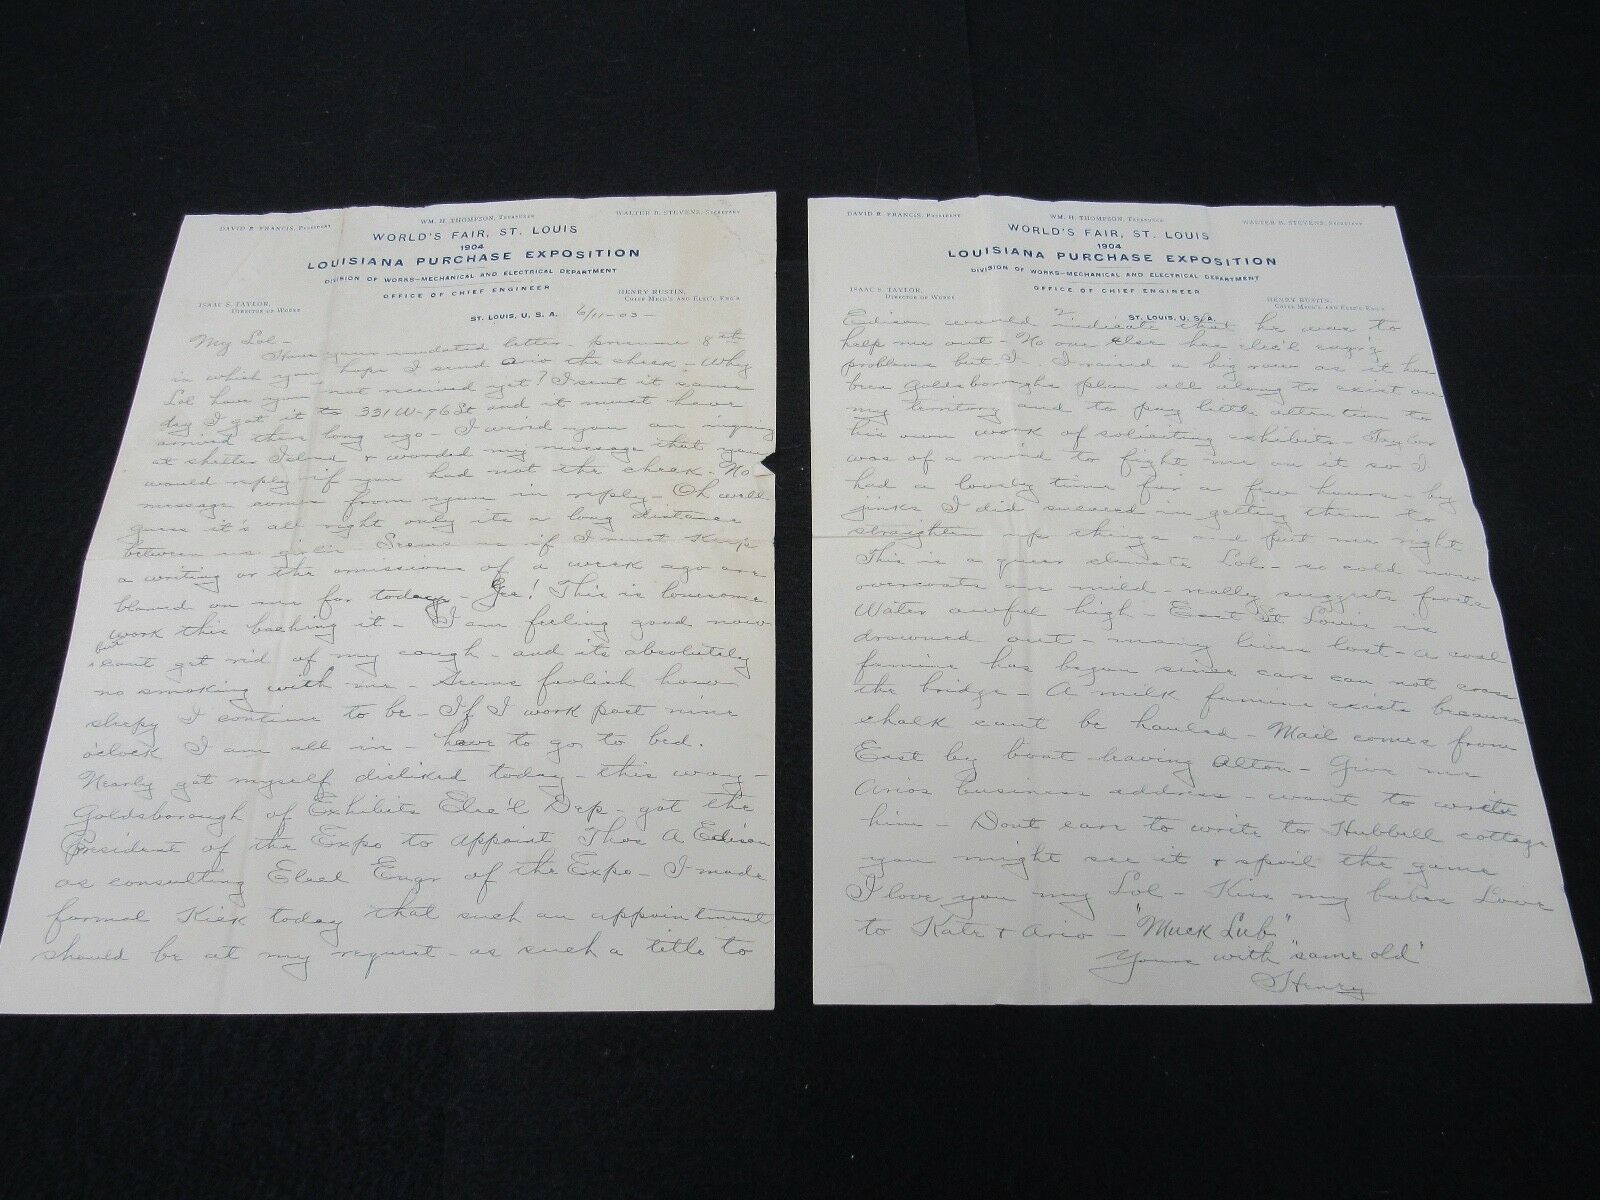 DAVID R. FRANCIS, PRESIDENT
WM. H. THOMPSON, TREASURER
WALTER B. STEVENS, SECRETARY
WORLD'S FAIR, ST. LOUIS
1904
LOUISIANA PURCHASE EXPOSITION
DIVISION OF WORKS-MECHANICAL AND ELECTRICAL DEPARTMENT
OFFICE OF CHIEF ENGINEER
ISAAC S. TAYLOR, DIRECTOR OF WORKS
HENRY RUSTIN, CHIEF MECH'L AND ELEC'L ENG'R
ST. LOUIS, U. S. A. 6/11-03-
My Lol-
Have your undated letter - presume 8th
in which you hope I send Ario the check - Why
Lol have you not received yet? I sent it same
day I got it to 331 W-76 St and it must have
arrived there long ago - I wired you an inquiry
at Shelter Island & worded my message that you
would reply if you had not the check - No
message comes from you in reply - Oh well
guess it's all right only its a long distance
between us girlie Seems as if I must keep
a writing or the omissions of a week ago are
blamed on me for today - Gee! This is lonesome
work this baching it - I am feeling good now
but cant get rid of my cough - and its absolutely
no smoking with me - Seems foolish how
sleepy I continue to be - If I work past nine
o'clock I am all in - have to go to bed.
Nearly got myself disliked today - this way -
Goldsborough of Exhibits Elec'l Dep - got the
President of the Expo to appoint Thos A Edison
as consulting Elecl Engr of the Expo - I made
formal Kick today that such an appointment
should be at my request - as such a title to
DAVID R. FRANCIS, PRESIDENT
WM. H. THOMPSON, TREASURER
WALTER B. STEVENS, SECRETARY
WORLD'S FAIR, ST. LOUIS
1904
LOUISIANA PURCHASE EXPOSITION
DIVISION OF WORKS-MECHANICAL AND ELECTRICAL DEPARTMENT
OFFICE OF CHIEF ENGINEER
ISAAC S. TAYLOR, DIRECTOR OF WORKS
HENRY RUSTIN, CHIEF MECH'L AND ELEC'L ENG'R
ST. LOUIS, U. S. A.
2
Edison would indicate that he was to
help me out - No one else has elec'l eng'r'g
problems but I - I raised a big row as it has
been Goldsboroughs plan all along to exist on
my territory and to pay little attention to
his own work of soliciting exhibits - Taylor
was of a mind to fight me on it so I
had a lovely time for a few hours - by
jinks I did succeed in getting them to
straighten up things and put me right
This is a queer climate Lol - so cold now
overcoats are mild - really suggests frosts
Water awful high - East St Louis is
drowned out - many lives lost - a coal
famine has begun since cars can not cross
the bridge - A milk famine exists because
chalk cant be hauled - Mail comes from
East by boat leaving Alton - Give me
Arios business address - want to write
him - Dont care to write to Hubbell cottage
you might see it & spoil the game
I love you my Lol - Kiss my babes Love
to Kate & Ario - "Muck Lub"
Yours with "same old"
Henry